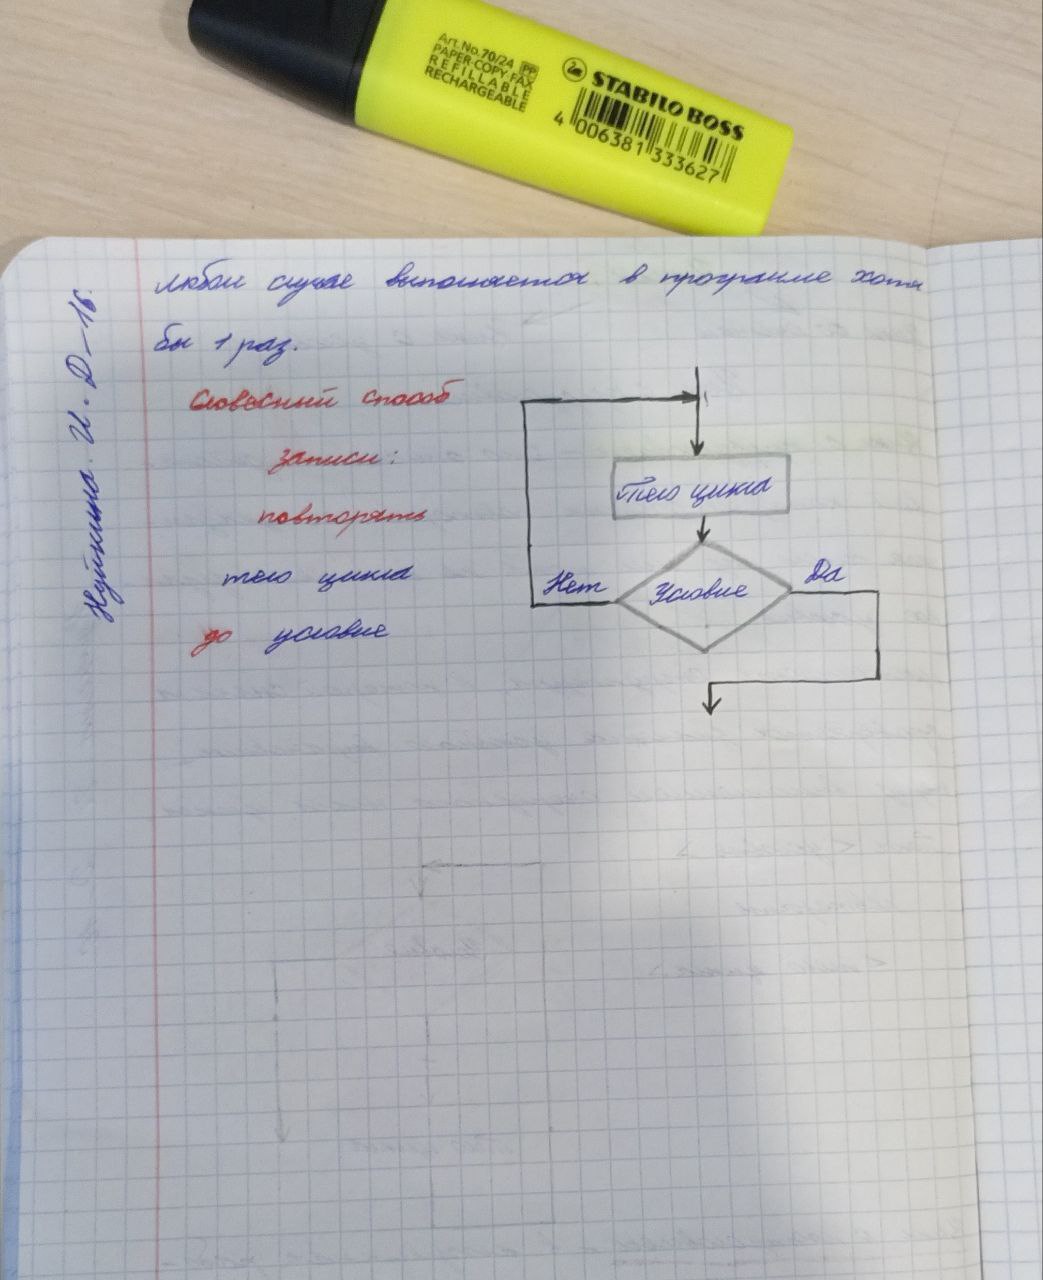 Art.No.70/24 PP
PAPER·COPY·FAX
REFILLABLE
RECHARGEABLE
STABILO BOSS
4 006381 333627
любом случае выполняется в программе хотя
бы 1 раз.
Словесный способ
записи:
повторять
тело цикла
до условие
Тело цикла
Условие
Нет
Да
И. Д-16.